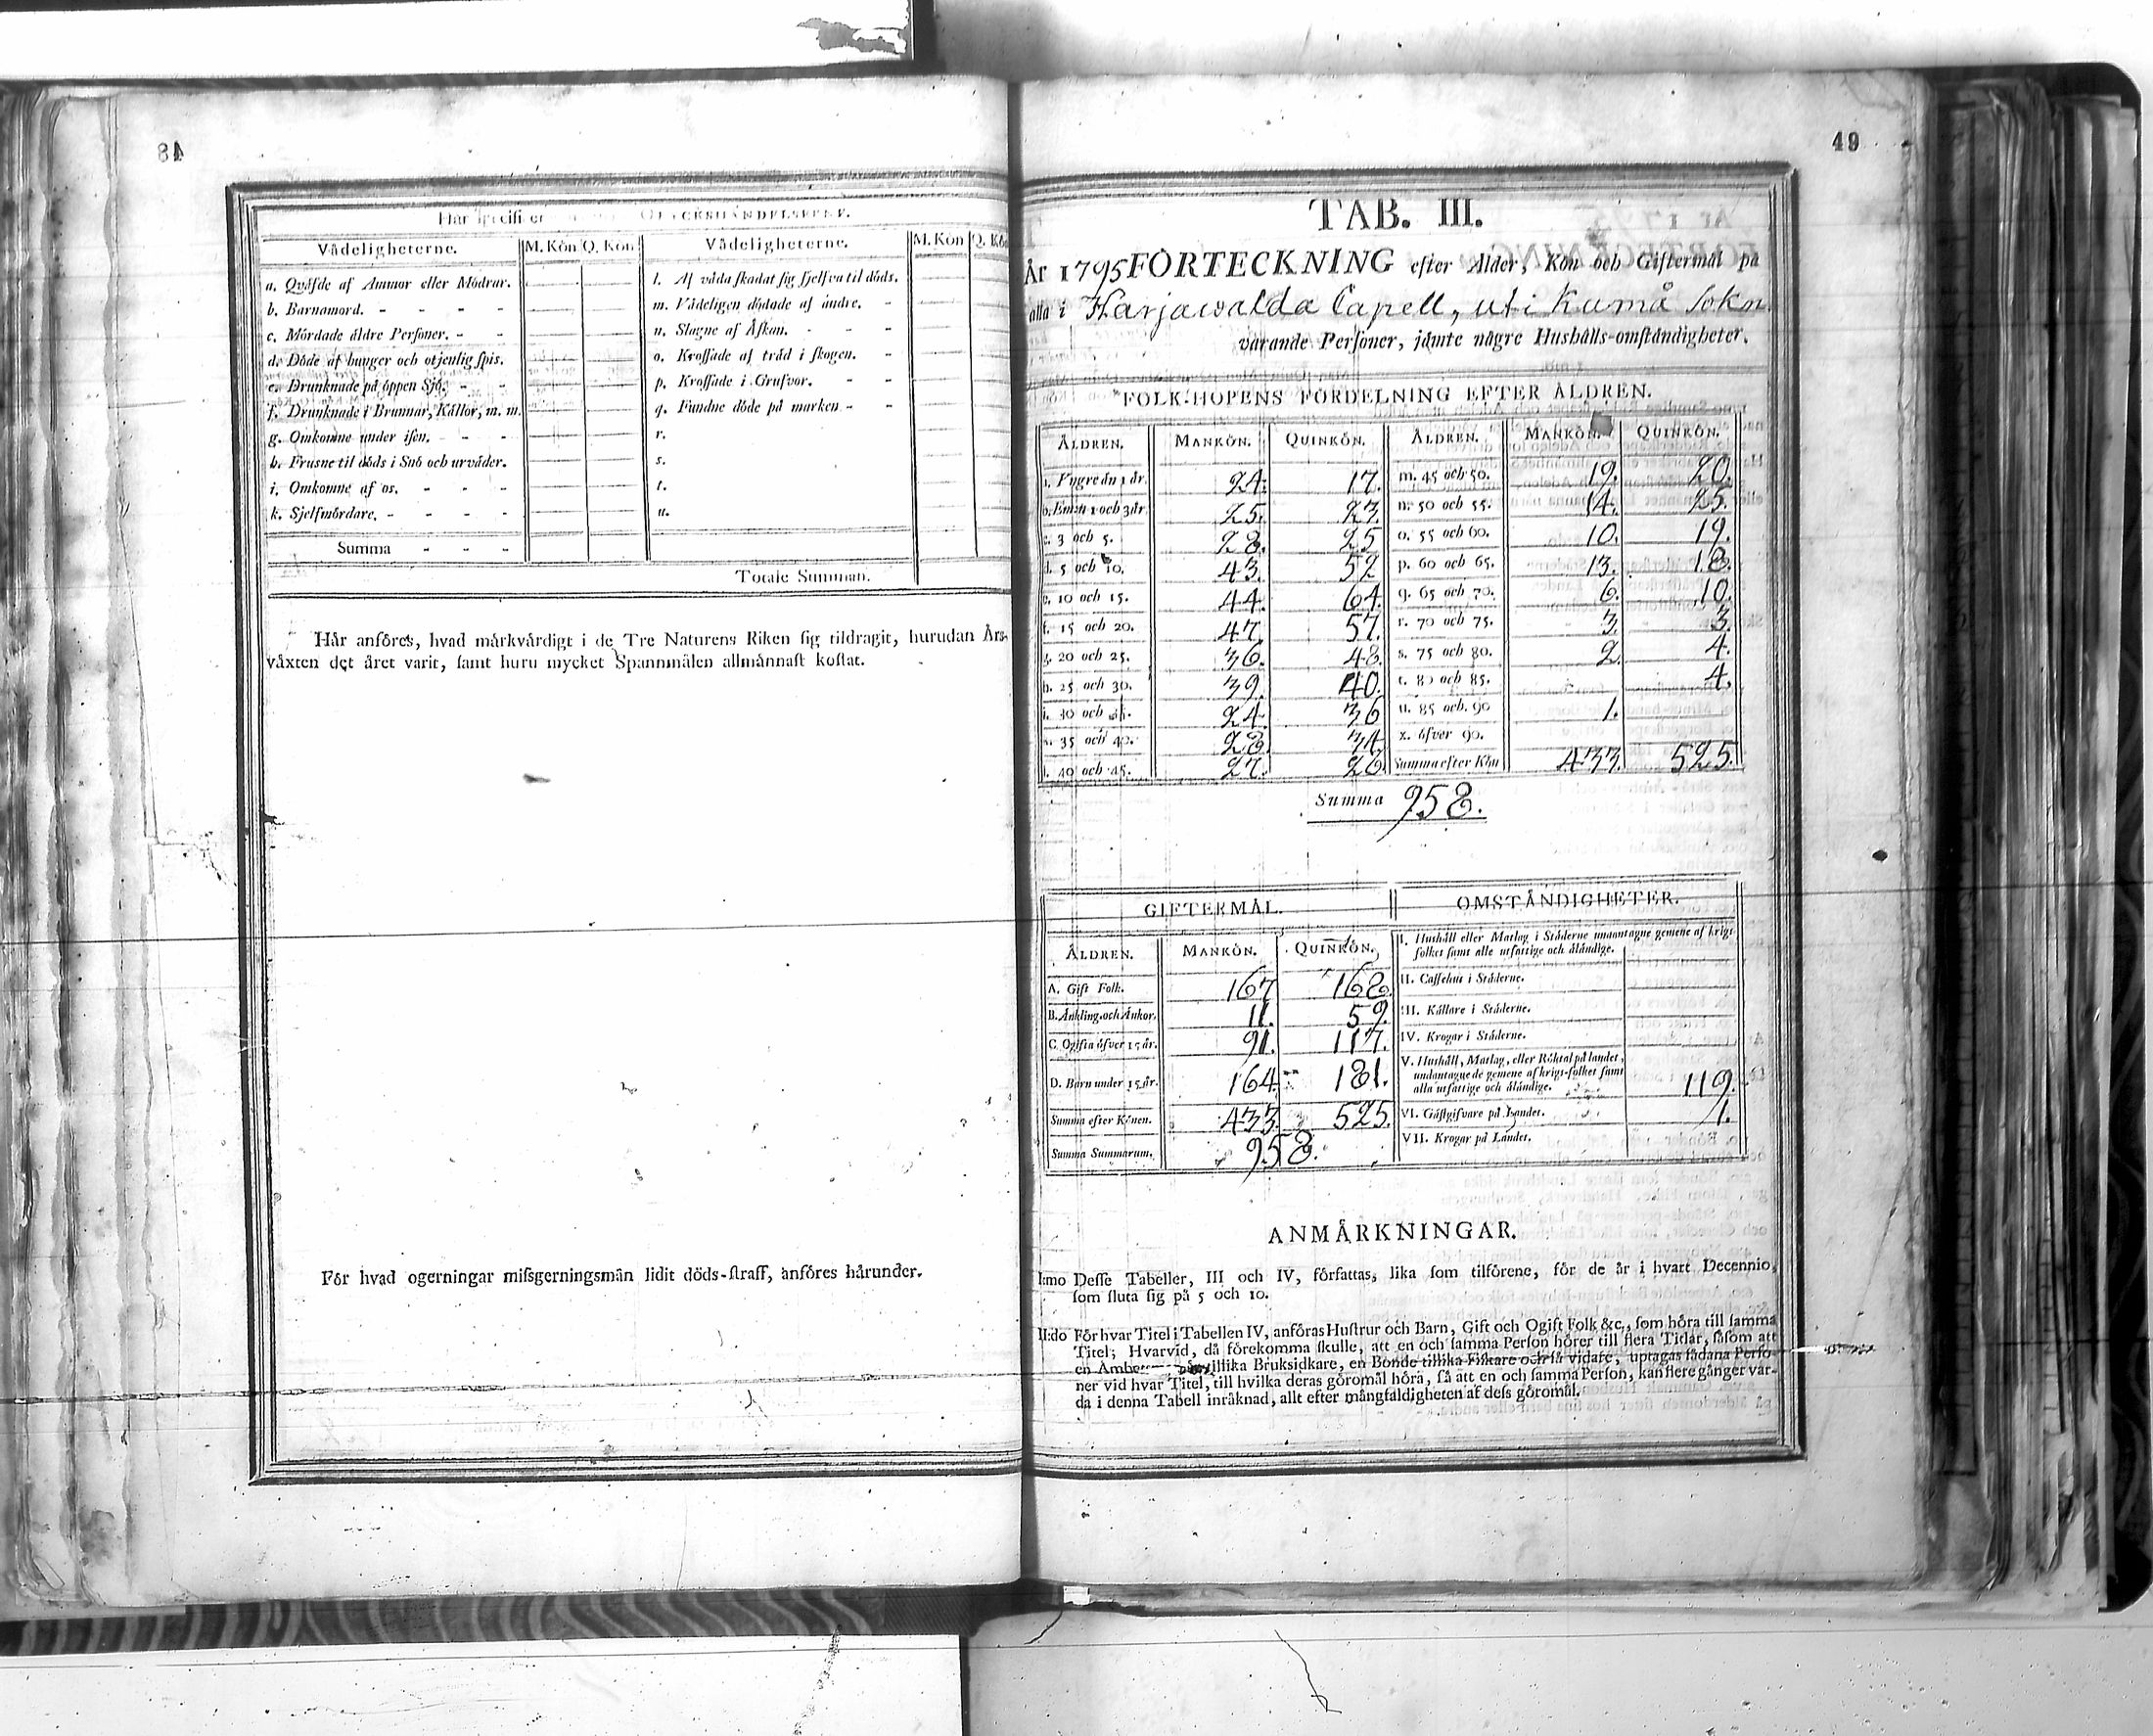 48
Vådeligheterne. M. Kön Q. Kön Vådeligheterne. M. Kön Q. Kön
a. Qväfde af Ammor eller Mödrar. l. Af våda skadat sig sjelfva til döds.
b. Barnamord. - - - - m. Vådeligen dödade af andre. -
c. Mördade äldre Personer. - - n. Slagne af Åskan. - - -
d. Döde af hunger och otjenlig spis. o. Krossade af träd i skogen. -
e. Drunknade på öppen Sjö. - - p. Krossade i Grufvor. - -
f. Drunknade i Brunnar, Källor, m. m. q. Fundne döde på marken - -
g. Omkomne under isen. - - r.
h. Frusne til döds i Snö och urväder. s.
i. Omkomne af os. - - - t.
k. Sjelfmördare. - - - - u.
Summa - - -
Totale Summan.
Här anföres, hvad märkvärdigt i de Tre Naturens Riken sig tildragit, hurudan Års-
växten det året varit, samt huru mycket Spannmålen allmännast kostat.
För hvad ogerningar missgerningsmän lidit döds-straff, anföres härunder.
49
TAB. III.
År 1795 FÖRTECKNING efter Ålder, Kön och Giftermål på
alla i Harjawalda Capell, uti Kumå Sokn
varande Personer, jämte någre Hushålls-omständigheter.
FOLK-HOPENS FÖRDELNING EFTER ÅLDREN.
ÅLDREN. MANKÖN. QUINKÖN. ÅLDREN. MANKÖN. QUINKÖN.
a. Yngre än 1 år. 24. 17. m. 45 och 50. 19. 20.
b. Emell. 1 och 3 år 25. 27. n. 50 och 55. 14. 25.
c. 3 och 5. 28. 25 o. 55 och 60. 10. 19.
d. 5 och 10. 43. 52 p. 60 och 65. 13. 18.
e. 10 och 15. 44. 64. q. 65 och 70. 6. 10.
f. 15 och 20. 47. 57. r. 70 och 75. 3. 3.
g. 20 och 25. 36. 48. s. 75 och 80. 2. 4.
h. 25 och 30. 39. 40. t. 80 och 85. 4.
i. 30 och 24 36 u. 85 och 90 1.
35 och 40. 28. 34. x. öfver 90.
l. 40 och 45. 27. 26 Summa efter Kön 433. 525.
Summa 958.
GIFTERMÅL. OMSTÄNDIGHETER.
ÅLDREN. MANKÖN. QUINKÖN. I. Hushåll eller Matlag i Städerne undantagne gemene af krigs-
folket samt alle utfattige och åländige.
A. Gift Folk. 167 168. II. Caffehus i Städerne.
B. Änkling. och Änkor. 11. 59. III. Källare i Städerne.
C. Ogifta öfver 15 år. 91. 117. IV. Krogar i Städerne.
D. Barn under 15 år. 164. 181. V. Hushåll, Matlag, eller Röktal på landet,
undantagne de gemene af krigs-folket samt
alla utfattige och åländige. 119.
Summa efter Könen. 433. 525. VI. Gästgifvare på Landet. 1.
Summa Summarum. 958. VII. Krogar på Landet.
ANMÄRKNINGAR.
I:mo Desse Tabeller, III och IV, författas, lika som tilförene, för de år i hvart Decennio,
som sluta sig på 5 och 10.
II:do För hvar Titel i Tabellen IV, anföras Hustrur och Barn, Gift och Ogift Folk &c., som höra till samma
Titel; Hvarvid, då förekomma skulle, att en och samma Person hörer till flera Titlar, såsom att
en tillika Bruksidkare, en Bonde tillika Fiskare och så vidare, uptagas sådana Perso-
ner vid hvar Titel, till hvilka deras göromål höra, så att en och samma Person, kan flere gånger var-
da i denna Tabell inräknad, allt efter mångfaldigheten af dess göromål.